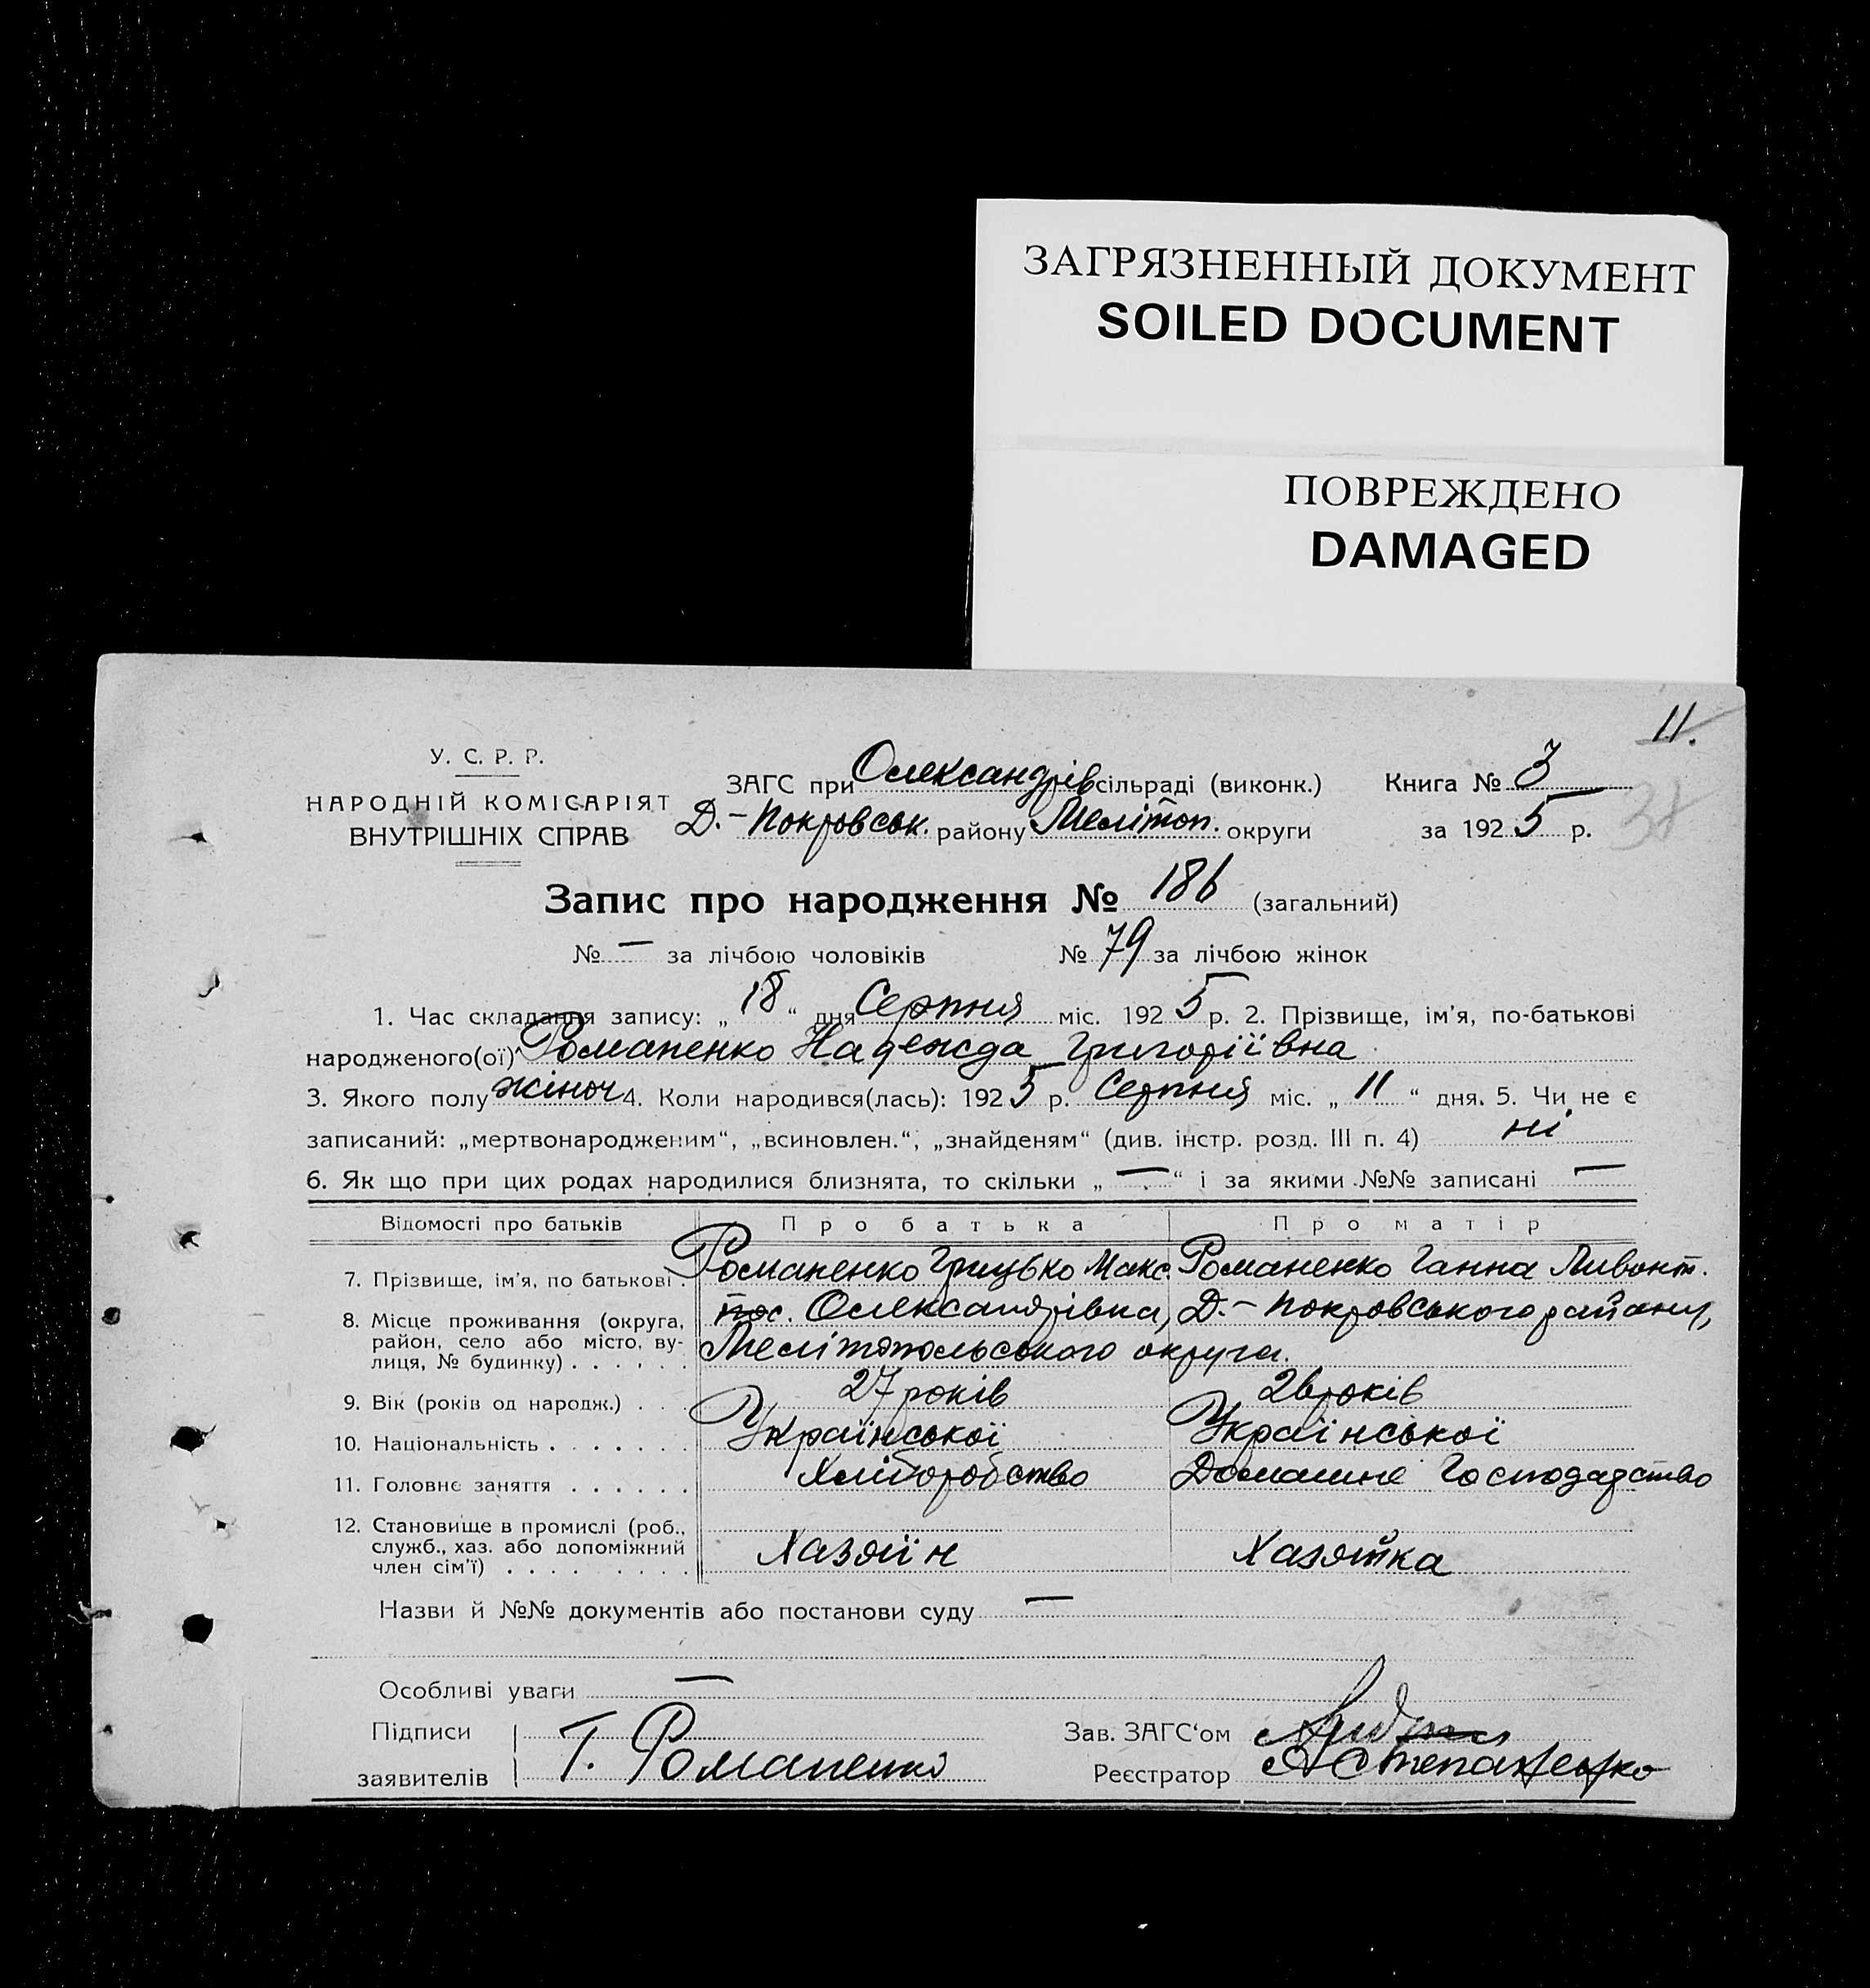 ЗАГРЯЗНЕННЫЙ ДОКУМЕНТ
SOILED DOCUMENT
ПОВРЕЖДЕНО
DAMAGED
11.
38
У. С. Р. Р.
НАРОДНІЙ КОМІСАРІЯТ
ВНУТРІШНІХ СПРАВ
ЗАГС при Олександрів сільраді (виконк.) Книга № 3
Д.-Покровськ. району Мелітоп. округи за 1925 р.
Запис про народження № 186 (загальний)
№ — за лічбою чоловіків № 79 за лічбою жінок
1. Час складання запису: „18“ дня Серпня міс. 1925 р. 2. Прізвище, ім'я, по-батькові
народженого(ої) Романенко Надежда Григоріївна
3. Якого полу жіноч 4. Коли народився(лась): 1925 р. Серпня міс. „11“ дня. 5. Чи не є
записаний: „мертвонародженим“, „всиновлен.“, „знайденям“ (див. інстр. розд. III п. 4) ні
6. Як що при цих родах народилися близнята, то скільки „—“ і за якими №№ записані —
Відомості про батьків Про батька Про матір
7. Прізвище, ім'я, по батькові Романенко Грицько Макс. Романенко Ганна Ливонт.
8. Місце проживання (округа, пос. Олександрівка, Д.-Покровського району,
район, село або місто, ву-
лиця, № будинку) . . . . . . Мелітопольського округа.
9. Вік (років од народж.) . . . 27 років 26 років
10. Національність . . . . . . . Української Української
11. Головне заняття . . . . . . Хліборобство Домашне Господарство
12. Становище в промислі (роб.,
служб., хаз. або допоміжний Хазяїн Хазяйка
член сім'ї) . . . . . . . . .
Назви й №№ документів або постанови суду —
Особливі уваги —
Підписи Зав. ЗАГС'ом
заявителів Г. Романенко Реєстратор А Степаненко